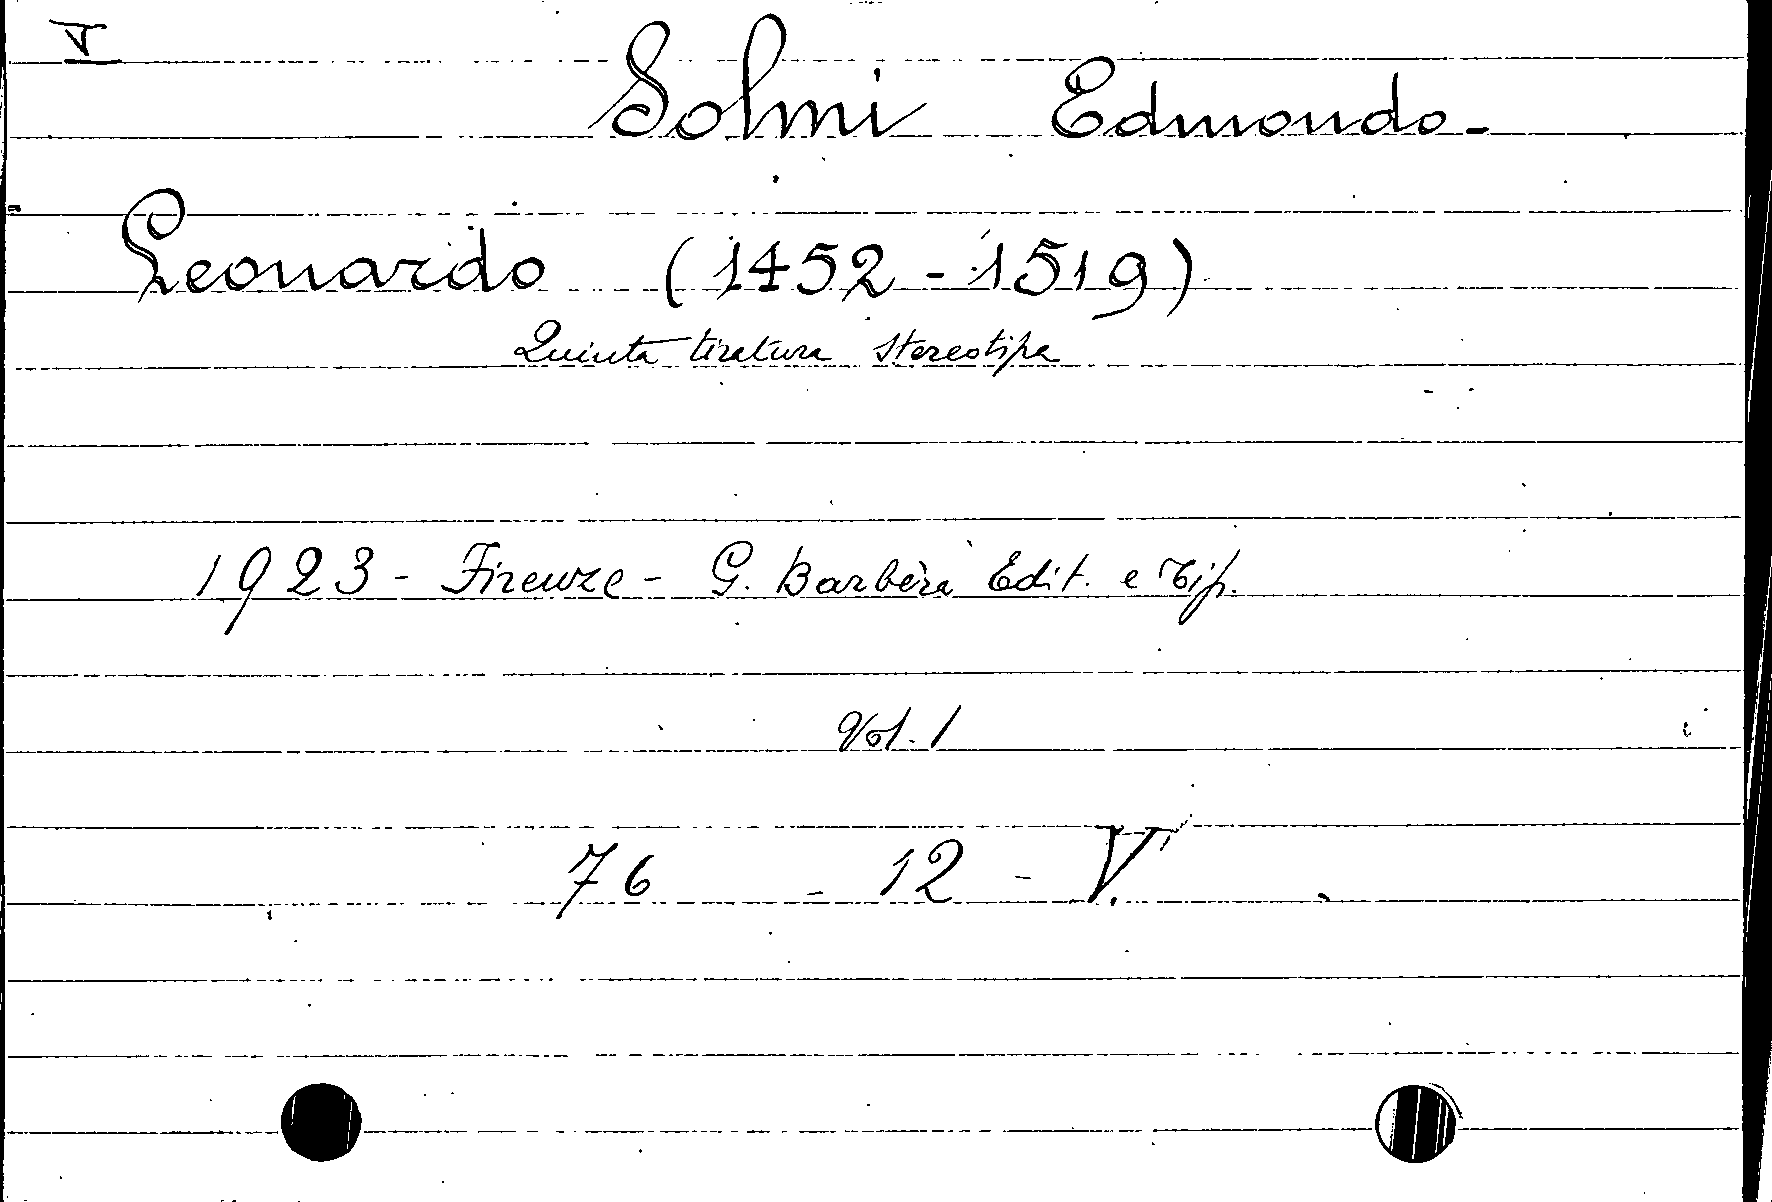 V
Solmi Edmondo.
Leonardo (1452 - 1519)
Quinta tiratura stereotipa
1923 - Firenze - G. Barbèra Edit. e Tip.
Vol. 1
76 - 12 - V.